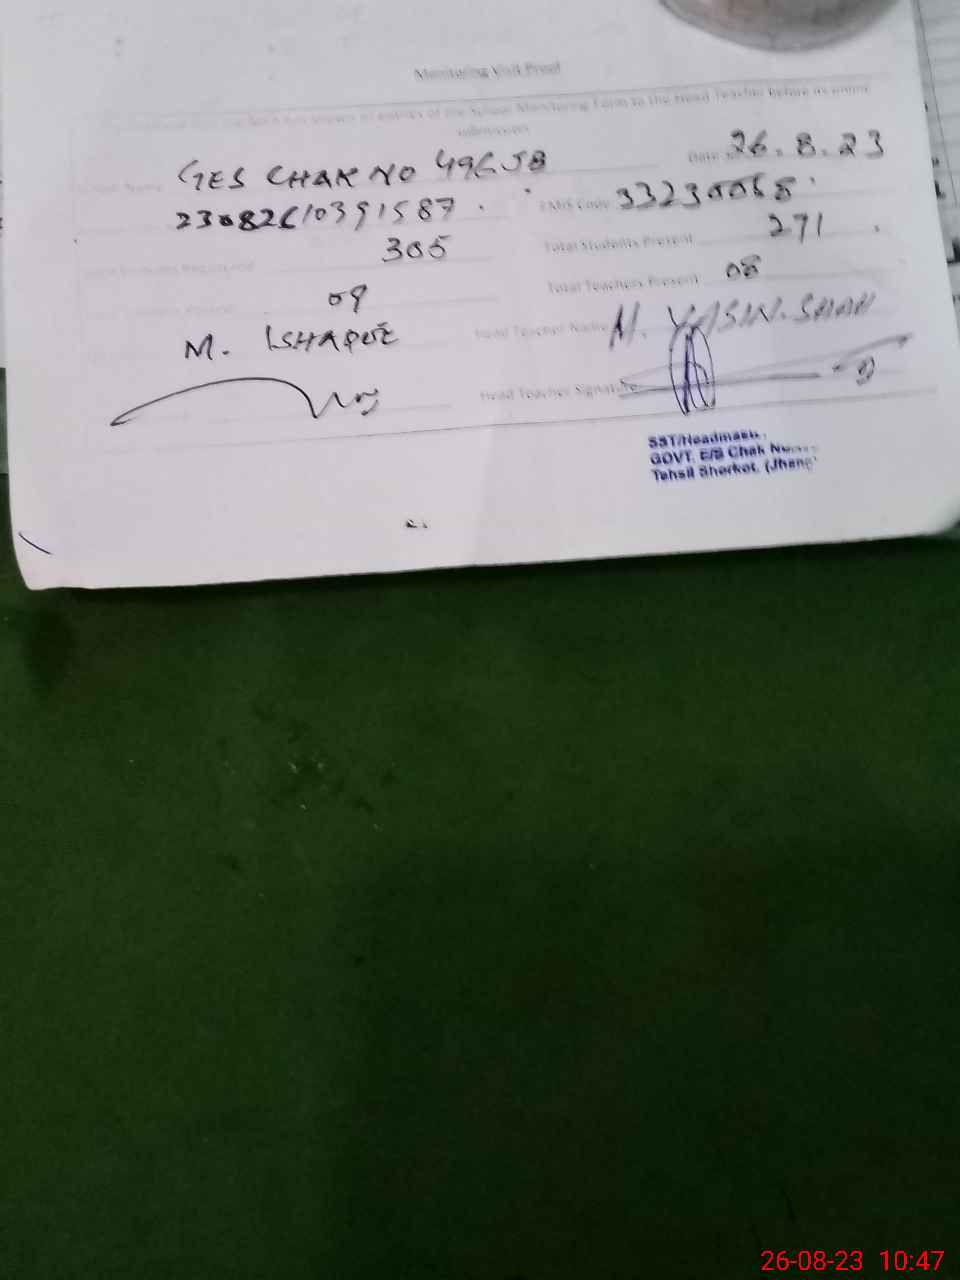 Monitoring Visit Proof
entries of the School Monitoring Form to the Head Teacher before its online
submission
GES CHAK NO 496JB Date 26.8.23
23082610391587 EMIS Code 33230068
305 Total Students Present 271
09 Total Teachers Present 08
M. ISHAQUE Head Teacher Name M. YASIN. SHAH
Head Teacher Signature
SST/Headmaste
GOVT. E/S Chak No
Tehsil Shorkot, (Jhang)
26-08-23 10:47